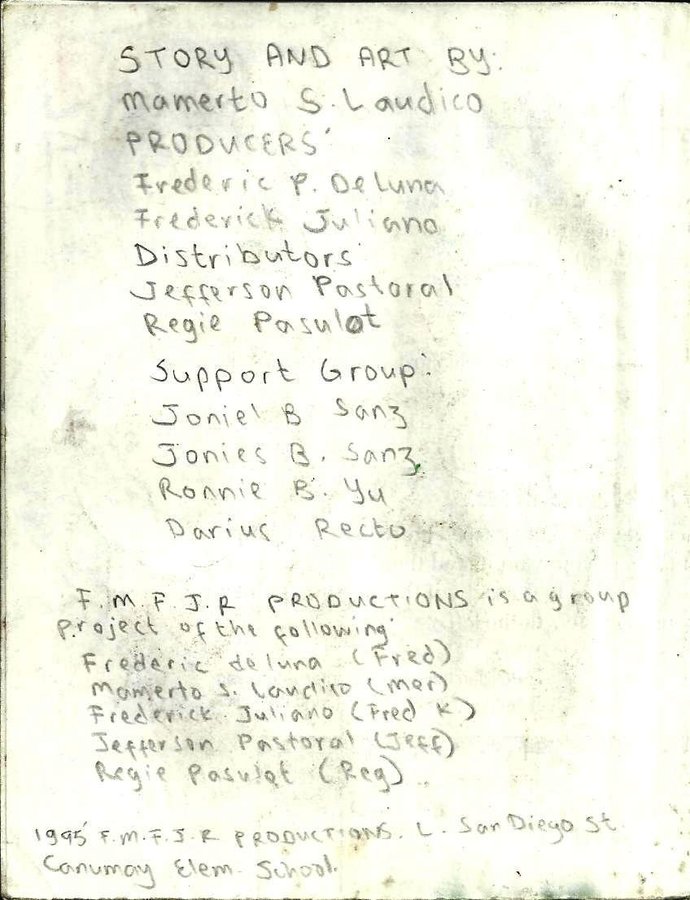 STORY AND ART BY:
Mamerto S. Laudico
PRODUCERS
Frederic P. De Luna
Frederick Juliano
Distributors
Jefferson Pastoral
Regie Pasulot
Support Group:
Joniel B Sanz
Jonies B. Sanz
Ronnie B. Yu
Darius Recto
F.M.F.J.R PRODUCTIONS is a group
project of the following
Frederic de luna (Fred)
Mamerto S. Laudico (mer)
Frederick Juliano (Fred K)
Jefferson Pastoral (Jeff)
Regie Pasulot (Reg)
1995 F.M.F.J.R PRODUCTIONS. L. San Diego St
Canumay Elem. School.